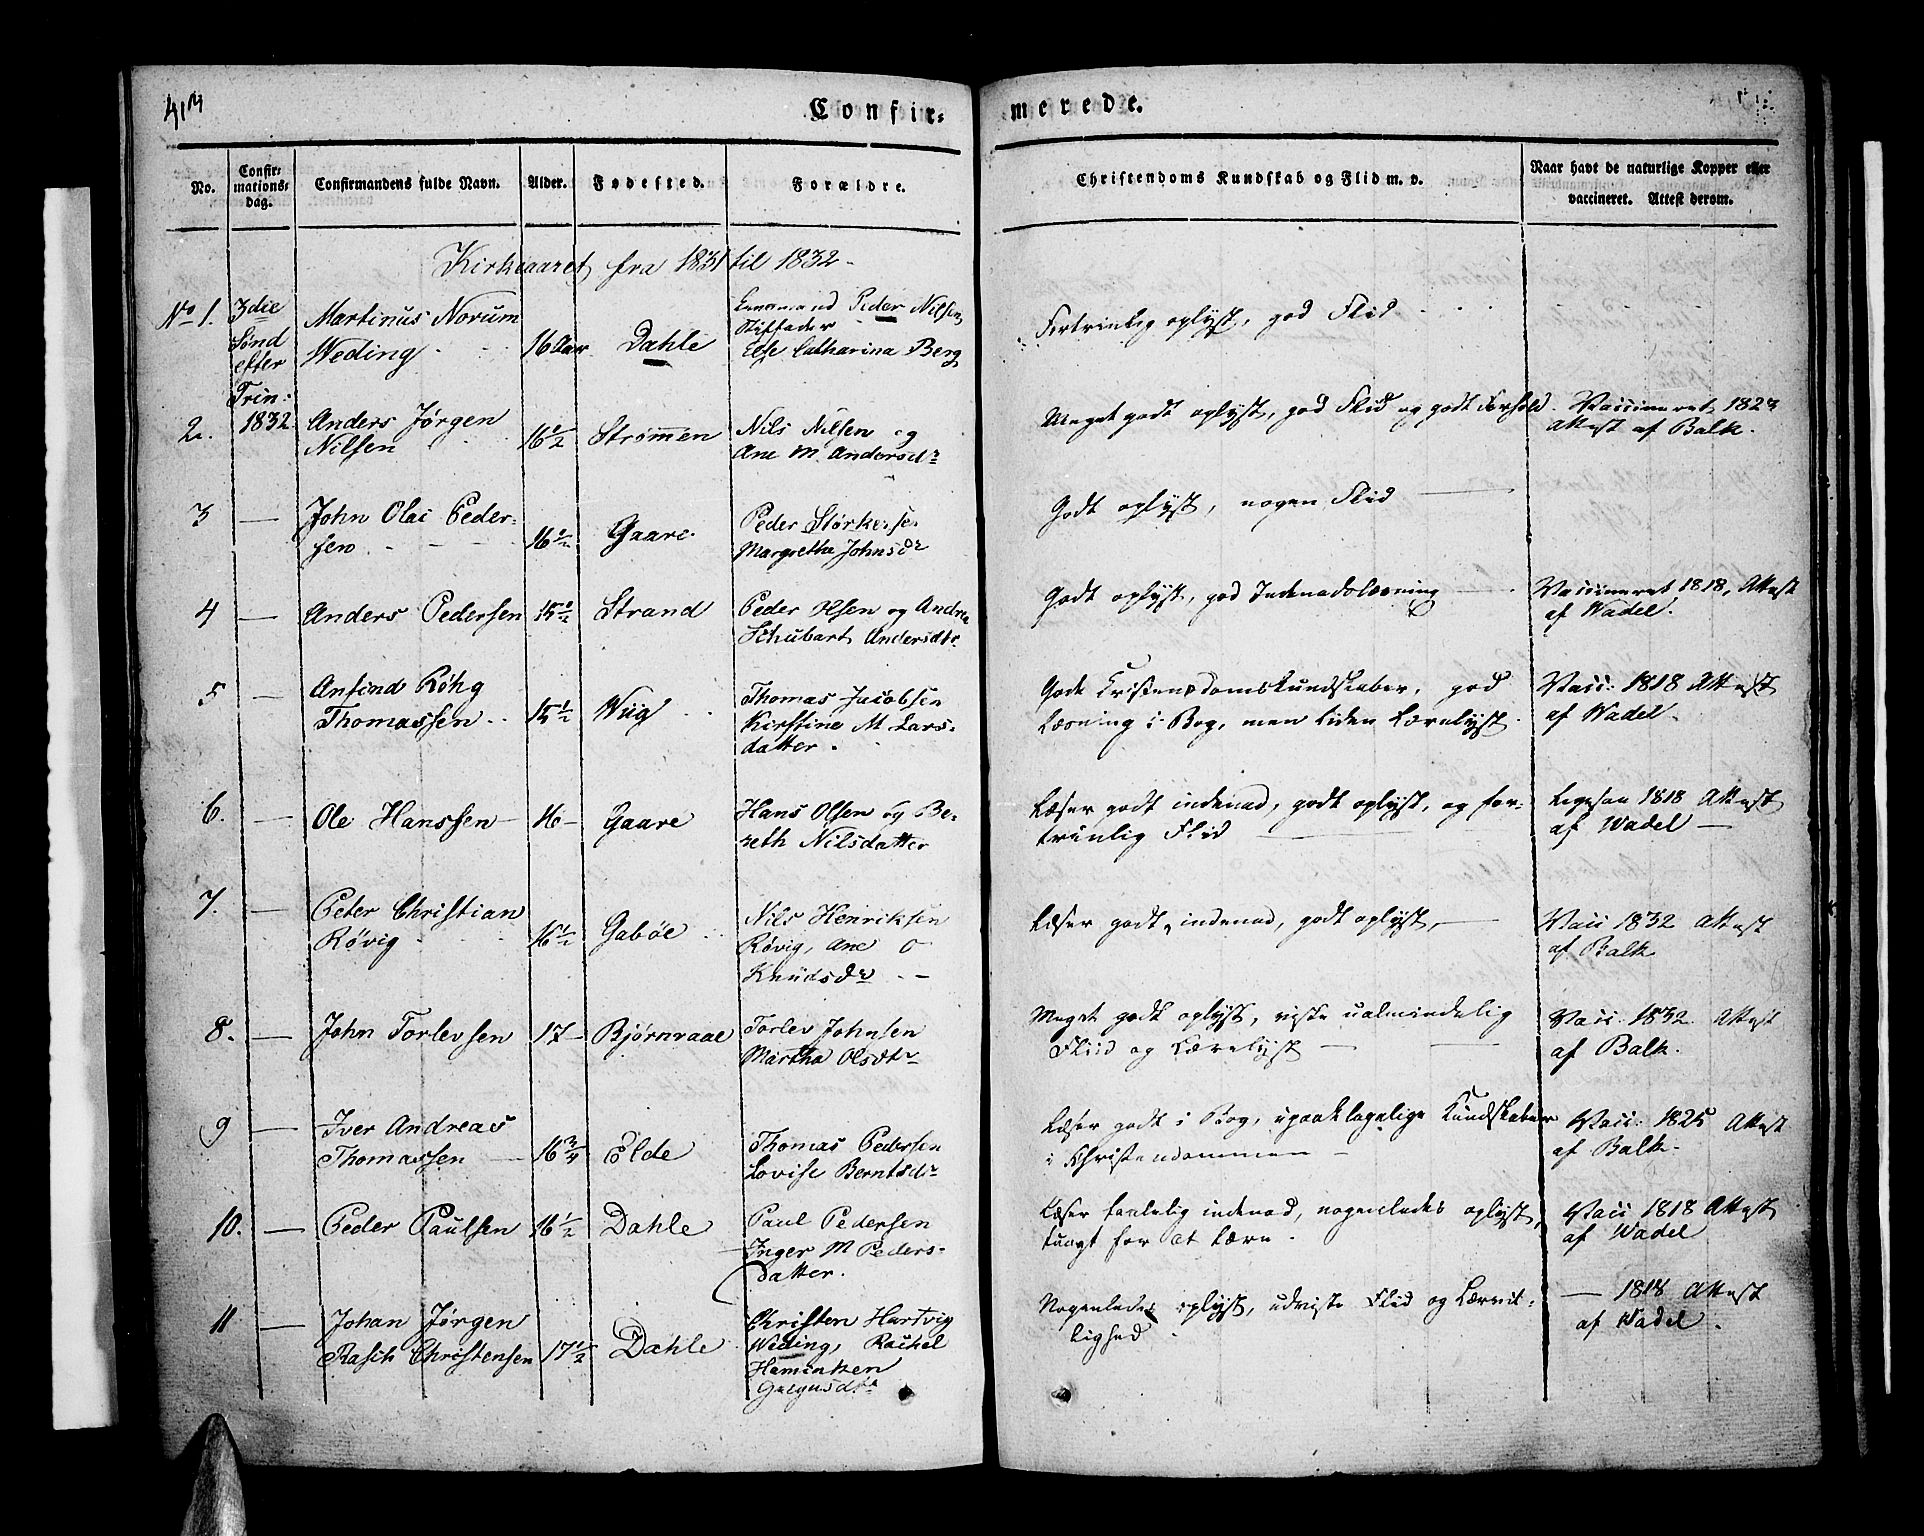 Confir-
merede.
No.
Confir-
mations-
dag.
Confirmandens fulde Navn.
Alder.
Fødested.
Forældre.
Christendoms Kundskab og Flid m. v.
Naar havt de naturlige Kopper eller
vaccineret. Attest derom.
Kirkeaaret fra 1831 til 1832
No 1.
3die
Sønd
efter
Trin:
1832
Martinus Norum
Weding
16 Aar
Dahle
Peder Nilsen
Stiffader
Else Catharina Berg
Fortrinlig oplyst, god Flid
2.
Anders Jørgen
Nilsen
16½
Strømen
Nils Nilsen og
Ane M. Andersdr
Meget godt oplyst, god Flid og godt Forhold
Vaccineret 1823
Attest af Balk.
3
John Olai Peder-
sen
16½
Gaare
Peder Størkerse
Margrethe Johnsdr
Godt oplyst, nogen Flid
4
Anders Pedersen
15½
Strand
Peder Olsen og Andrea
Schubart Andersdtr
Godt oplyst, god Indenadslæsning
Vaccineret 1818, Attest
af Wadel.
5
Anfind Röhg
Thomassen
15½
Wiig
Thomas Jacobsen
Kirstine M Lars-
datter.
Gode Kristendomskundskaber, god
Læsning i Bog, men liden Lærelyst.
Vacc: 1818 Attest
af Wadel.
6.
Ole Hanssen
16
Gaare
Hans Olsen og Be-
reth Nilsdatter
Læser godt indenad, godt oplyst, og for-
trinlig Flid
Ligesaa 1818 Attest
af Wadel
7.
Peter Christian
Røvig
16½
Gabøe
Nils Henriksen
Røvig, Ane O
Knudsdr
Læser godt indenad, godt oplyst,
Vacc 1832 Attest
af Balk
8.
John Torlevsen
17
Bjørnraae
Torlev Johnsen
Martha Olsdtr
Meget godt oplyst, viste ualmindelig
Fliid og Lærelyst
Vacc. 1832. Attest
af Balk.
9
Iver Andreas
Thomassen
16¾
Elde
Thomas Pedersen
Lovise Berntsdr
Læser godt i Bog, upaaklagelige Kundskaber
i Christendommen
Vacc: 1825 Attest
af Balk.
10.
Peder Paulsen
16½
Dahle
Paul Pedersen
Inger M Peders-
datter.
Læser faalelig indenad, nogenledes oplyst,
tungt for at lære.
Vacc 1818 Attest
af Wadel
11
Johan Jørgen
Rasch Christensen
17½
Dahle
Christen Hartvig
Weding, Rachel
Nogenledes oplyst, udviste Flid og Lærvil-
lighed
— 1818 Attest
af Wadel.